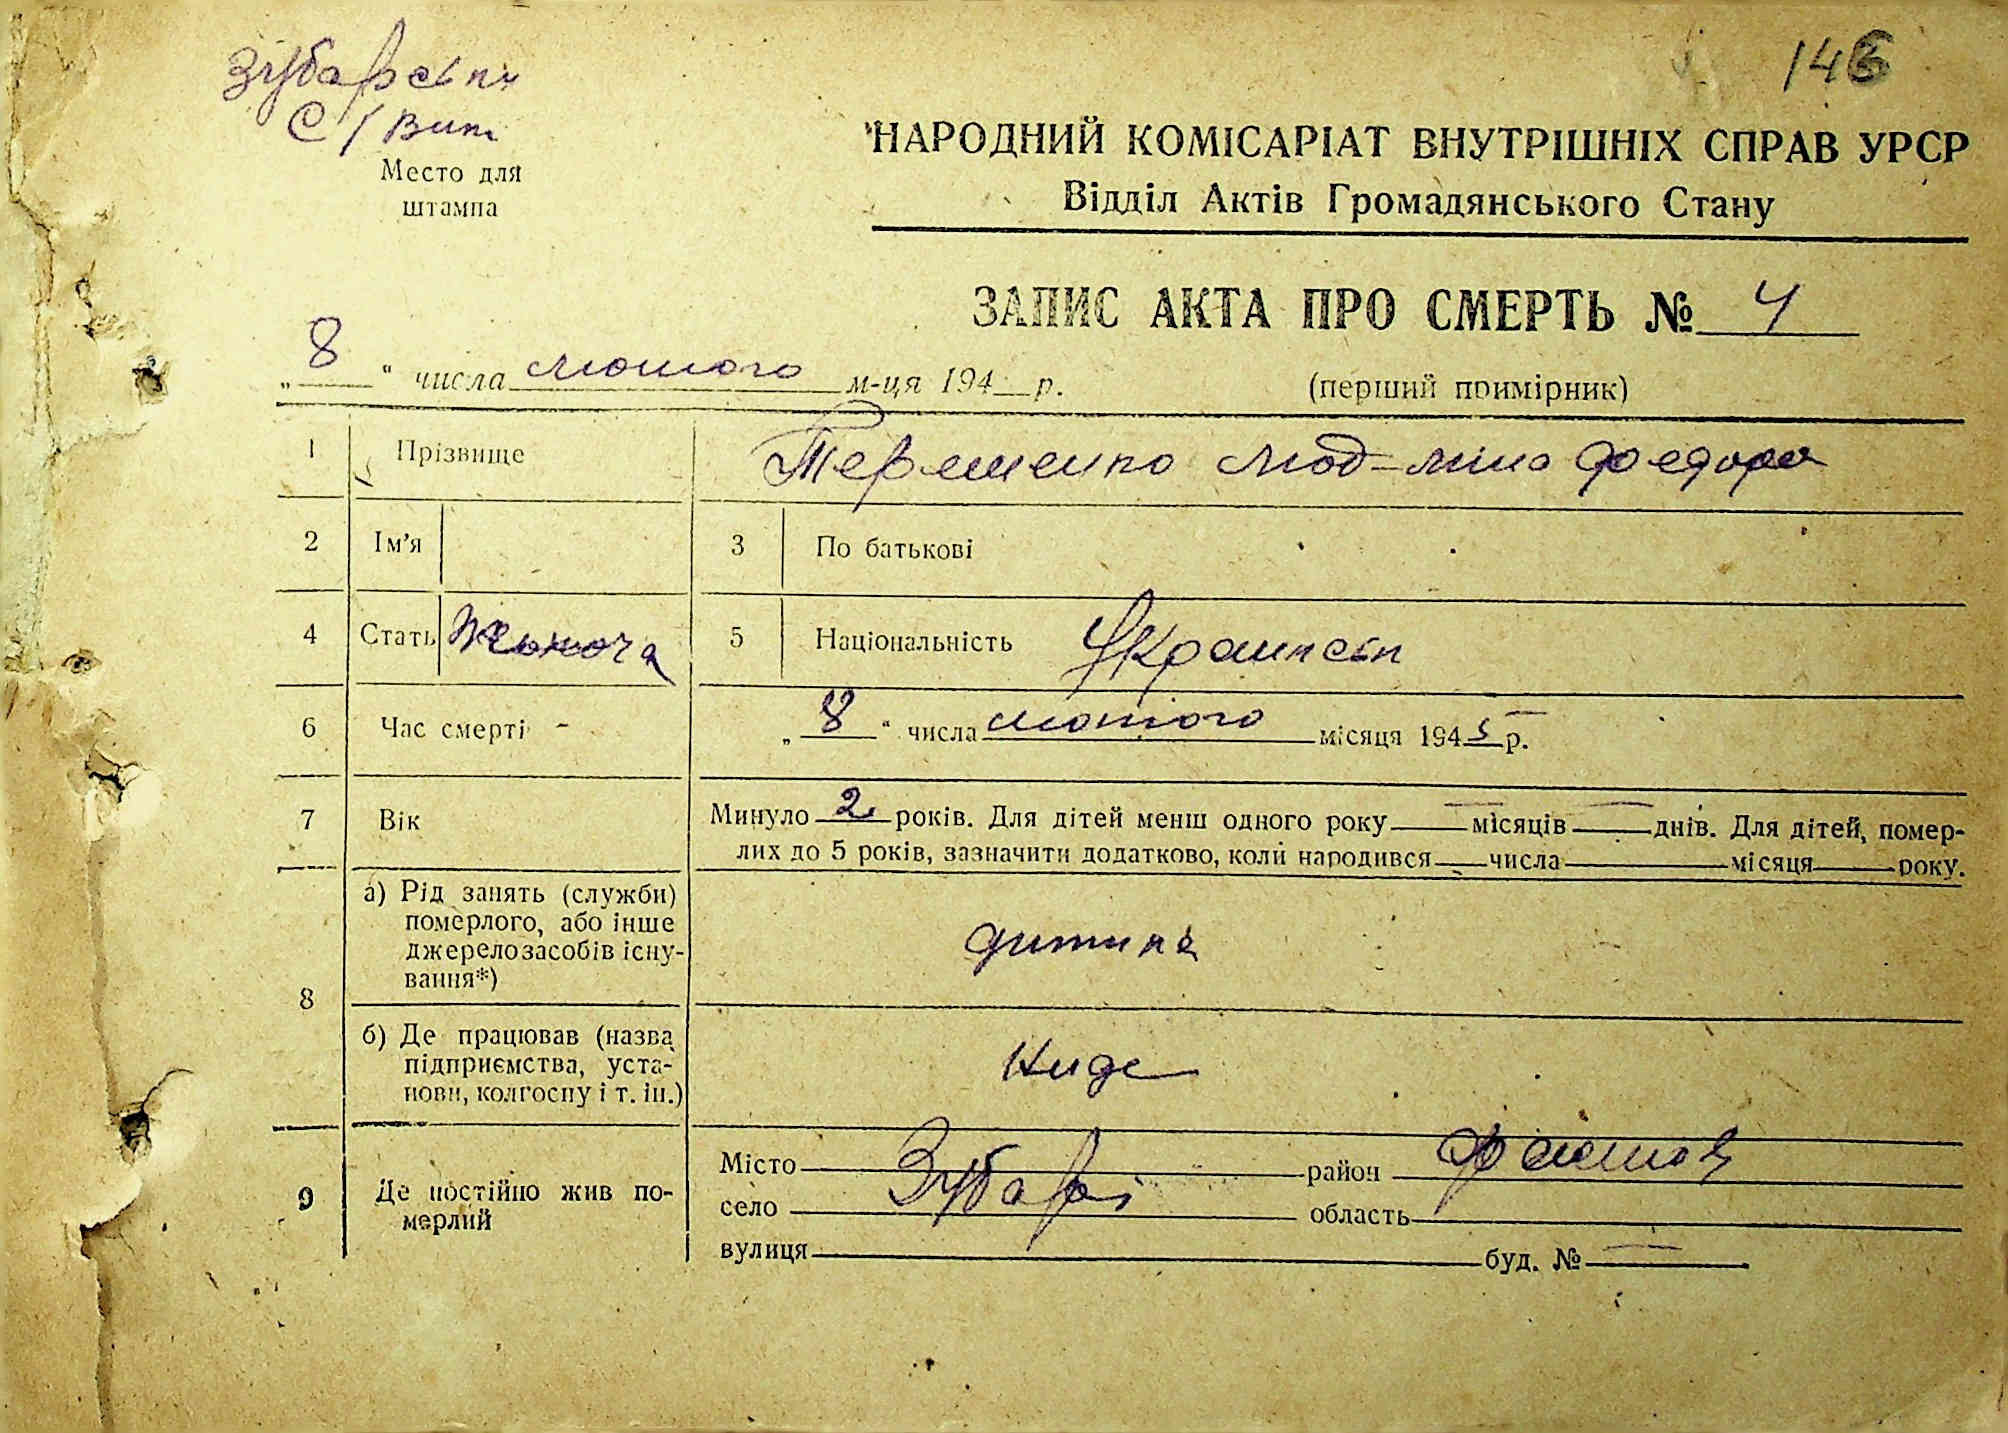 146
Зубарськи
С/Вит
Место для
штампа
НАРОДНИЙ КОМІСАРІАТ ВНУТРІШНІХ СПРАВ УРСР
Відділ Актів Громадянського Стану
ЗАПИС АКТА ПРО СМЕРТЬ № 4
„8“ числа лютого м-ця 194 р. (перший примірник)
1 Прізвище Терешенко Людмила Федора
2 Ім'я 3 По батькові
4 Стать Жьноча 5 Національність
6 Час смерті - „8“ числа лютого місяця 1945 р.
7 Вік Минуло 2 років. Для дітей менш одного року — місяців — днів. Для дітей, помер-
лих до 5 років, зазначити додатково, коли народився числа місяця року.
8 а) Рід занять (служби)
померлого, або інше
джерело засобів існу-
вання*)
дитина
б) Де працював (назва
підприємства, уста-
нови, колгоспу і т. ін.)
Ниде
9 Де постійно жив по-
мерлий
Місто район
село Зубарі область
вулиця буд. № —